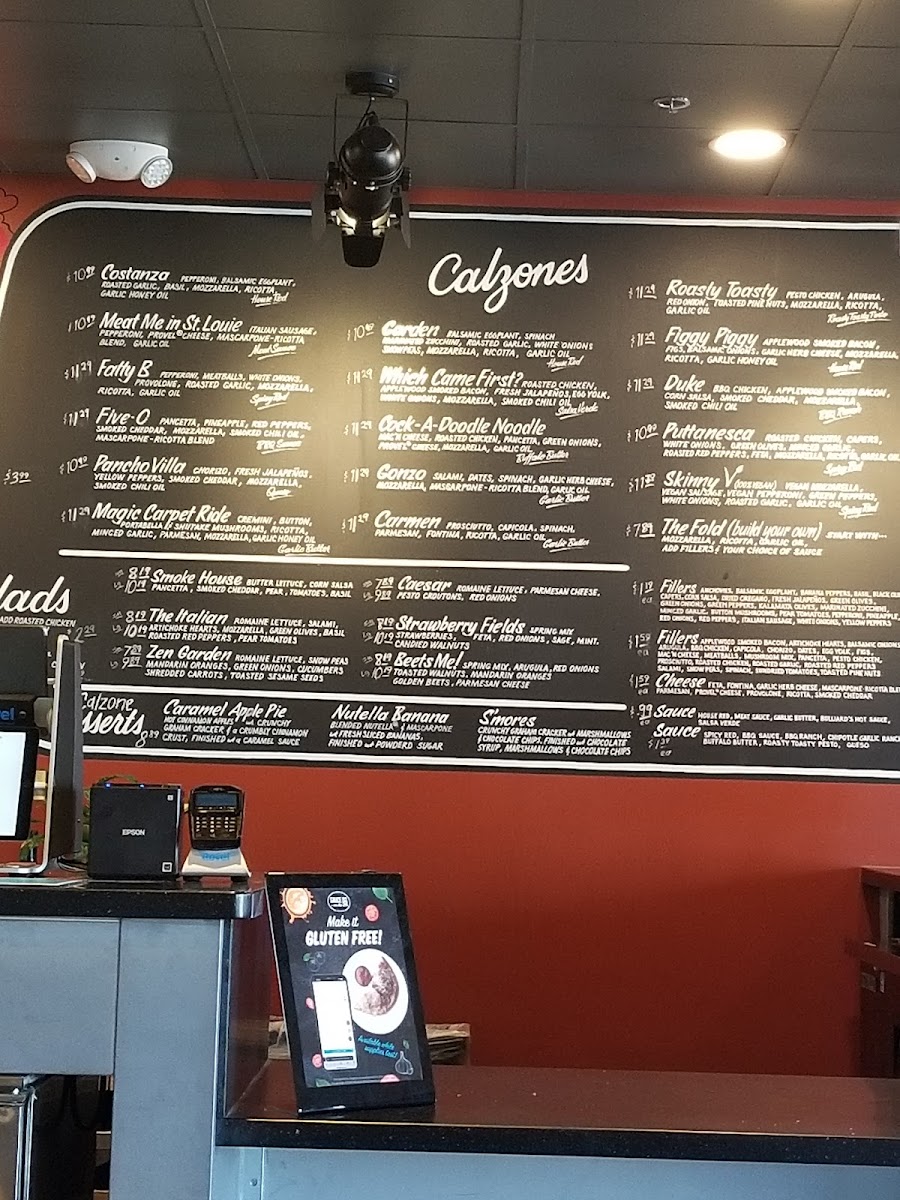 Calzones
$10.99 Costanza PEPPERONI, BALSAMIC EGGPLANT,
ROASTED GARLIC, BASIL, MOZZARELLA, RICOTTA,
GARLIC HONEY OIL
House Red
Meat Me in St. Louie ITALIAN SAUSAGE,
PEPPERONI, PROVEL® CHEESE, MASCARPONE-RICOTTA
BLEND, GARLIC OIL
Meat Sauce
$11.29 Fatty B PEPPERONI, MEATBALLS, WHITE ONIONS,
PROVOLONE, ROASTED GARLIC, MOZZARELLA,
RICOTTA, GARLIC OIL
Spicy Red
$11.29 Five-O PANCETTA, PINEAPPLE, RED PEPPERS,
SMOKED CHEDDAR, MOZZARELLA, SMOKED CHILI OIL,
MASCARPONE-RICOTTA BLEND
BBQ Sauce
Pancho Villa CHORIZO, FRESH JALAPEÑOS,
YELLOW PEPPERS, SMOKED CHEDDAR, MOZZARELLA,
SMOKED CHILI OIL
Queso
$3.99
$11.29 Magic Carpet Ride CREMINI, BUTTON,
PORTABELLA & SHIITAKE MUSHROOMS, RICOTTA,
MINCED GARLIC, PARMESAN, MOZZARELLA, GARLIC HONEY OIL
Garlic Butter
Garden BALSAMIC EGGPLANT, SPINACH
MARINATED ZUCCHINI, ROASTED GARLIC, WHITE ONIONS
SNOW PEAS, MOZZARELLA, RICOTTA, GARLIC OIL
House Red
$11.29 Which Came First? ROASTED CHICKEN,
APPLEWOOD SMOKED BACON, FRESH JALAPEÑOS, EGG YOLK,
WHITE ONIONS, MOZZARELLA, SMOKED CHILI OIL
Salsa Verde
$11.29 Cock-A-Doodle Noodle
MAC 'N CHEESE, ROASTED CHICKEN, PANCETTA, GREEN ONIONS,
PROVEL® CHEESE, MOZZARELLA, GARLIC OIL
Buffalo Butter
$11.29 Gonzo SALAMI, DATES, SPINACH, GARLIC HERB CHEESE,
MOZZARELLA, MASCARPONE-RICOTTA BLEND, GARLIC OIL
Garlic Butter
$11.29 Carmen PROSCIUTTO, CAPICOLA, SPINACH,
PARMESAN, FONTINA, RICOTTA, GARLIC OIL
Garlic Butter
$11.29 Roasty Toasty PESTO CHICKEN, ARUGULA,
RED ONION, TOASTED PINE NUTS, MOZZARELLA, RICOTTA,
GARLIC OIL
Roasty Toasty Pesto
$11.29 Figgy Piggy APPLEWOOD SMOKED BACON,
FIGS, BALSAMIC ONIONS, GARLIC HERB CHEESE, MOZZARELLA,
RICOTTA, GARLIC HONEY OIL
House Red
$11.29 Duke BBQ CHICKEN, APPLEWOOD SMOKED BACON,
CORN SALSA, SMOKED CHEDDAR, MOZZARELLA
SMOKED CHILI OIL
BBQ Ranch
$10.99 Puttanesca ROASTED CHICKEN, CAPERS,
WHITE ONIONS, GREEN OLIVES,
ROASTED RED PEPPERS, FETA, MOZZARELLA, RICOTTA, GARLIC OIL
Spicy Red
Skinny V (100% VEGAN) VEGAN MOZZARELLA,
VEGAN SAUSAGE, VEGAN PEPPERONI, GREEN PEPPERS,
WHITE ONIONS, ROASTED GARLIC, GARLIC OIL
Spicy Red
$7.89 The Fold (build your own) START WITH---
MOZZARELLA, RICOTTA, GARLIC OIL
ADD FILLERS & YOUR CHOICE OF SAUCE
lads
ADD ROASTED CHICKEN
2.29
SM 8.19 Smoke House BUTTER LETTUCE, CORN SALSA
LG 10.19 PANCETTA, SMOKED CHEDDAR, PEAR TOMATOES, BASIL
SM 8.19 The Italian ROMAINE LETTUCE, SALAMI,
LG 10.19 ARTICHOKE HEARTS, MOZZARELLA, GREEN OLIVES, BASIL
ROASTED RED PEPPERS, PEAR TOMATOES
SM 7.89 Zen Garden ROMAINE LETTUCE, SNOW PEAS
LG 9.89 MANDARIN ORANGES, GREEN ONIONS, CUCUMBERS
SHREDDED CARROTS, TOASTED SESAME SEEDS
SM 7.89 Caesar ROMAINE LETTUCE, PARMESAN CHEESE,
LG 9.89 PESTO CROUTONS, RED ONIONS
Strawberry Fields SPRING MIX
LG 10.19 STRAWBERRIES, FETA, RED ONIONS, SAGE, MINT,
CANDIED WALNUTS
Beets Me! SPRING MIX, ARUGULA, RED ONIONS
TOASTED WALNUTS, MANDARIN ORANGES
GOLDEN BEETS, PARMESAN CHEESE
$1.19 ea Fillers ANCHOVIES, BALSAMIC EGGPLANT, BANANA PEPPERS, BASIL, BLACK OL
CAPERS, CORN SALSA, DRIED OREGANO, FRESH JALAPEÑOS, GREEN OLIVES,
GREEN ONIONS, GREEN PEPPERS, KALAMATA OLIVES, MARINATED ZUCCHINI,
MINCED GARLIC, MUSHROOMS, PEAR TOMATOES, PEPPERONI, PINEAPPLE,
RED ONIONS, RED PEPPERS, ITALIAN SAUSAGE, WHITE ONIONS, YELLOW PEPPERS
$1.59 ea Fillers APPLEWOOD SMOKED BACON, ARTICHOKE HEARTS, BALSAMIC ONIONS
ARUGULA, BBQ CHICKEN, CAPICOLA, CHORIZO, DATES, EGG YOLK, FIGS,
MAC 'N CHEESE, MEATBALLS, MUSHROOM MIX, PANCETTA, PESTO CHICKEN,
PROSCIUTTO, ROASTED CHICKEN, ROASTED GARLIC, ROASTED RED PEPPERS,
SALAMI, SNOW PEAS, SPINACH, SUNDRIED TOMATOES, TOASTED PINE NUTS
$1.59 ea Cheese FETA, FONTINA, GARLIC HERB CHEESE, MASCARPONE-RICOTTA BLEN
PARMESAN, PROVEL® CHEESE, PROVOLONE, RICOTTA, SMOKED CHEDDAR
$.99 Sauce HOUSE RED, MEAT SAUCE, GARLIC BUTTER, BULLIARD'S HOT SAUCE,
SALSA VERDE
ea Sauce SPICY RED, BBQ SAUCE, BBQ RANCH, CHIPOTLE GARLIC RANCH
BUFFALO BUTTER, ROASTY TOASTY PESTO, QUESO
Calzone
sserts
8.89
Caramel Apple Pie
HOT CINNAMON APPLES and CRUNCHY
GRAHAM CRACKER & a CRUMBLY CINNAMON
CRUST, FINISHED with a CARAMEL SAUCE
Nutella Banana
BLENDED NUTELLA® & MASCARPONE
with FRESH SLICED BANANAS.
FINISHED with POWDERD SUGAR
S'mores
CRUNCHY GRAHAM CRACKER and MARSHMALLOWS
& CHOCOLATE CHIPS. FINISHED with CHOCOLATE
SYRUP, MARSHMALLOWS & CHOCOLATE CHIPS
EPSON
Make it
GLUTEN FREE!
Available while
supplies last!